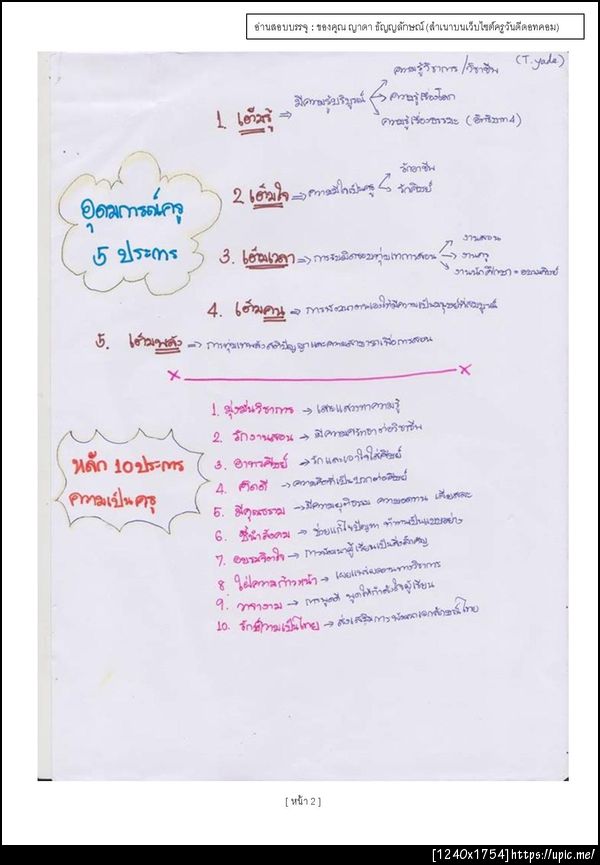 อ่านสอบบรรจุ : ของคุณ ญาดา ธัญญลักษณ์ (สำเนาบนเว็บไซต์ครูวันดีดอทคอม)
(T.yada)
ความรู้วิชาการ/วิชาชีพ
1. เต็มรู้ ⇒ มีความรู้บริบูรณ์ → ความรู้เรื่องโลก
ความรู้เรื่องธรรมะ (อิทธิบาท 4)
อุดมการณ์ครู
5 ประการ
รักอาชีพ
2 เต็มใจ → ความมีใจเป็นครู
รักศิษย์
งานสอน
3. เต็มเวลา → การรับผิดชอบทุ่มเทการสอน → งานครู
งานนักศึกษา = อบรมศิษย์
4. เต็มคน → การพัฒนาตนเองให้มีความเป็นมนุษย์ที่สมบูรณ์
5. เต็มพลัง → การทุ่มเทพลังสติปัญญาและความสามารถเพื่อการสอน
หลัก 10 ประการ
ความเป็นครู
1. มุ่งมั่นวิชาการ → เสาะแสวงหาความรู้
2. รักงานสอน → มีความศรัทธาต่อวิชาชีพ
3. อาทรศิษย์ → รักและเอาใจใส่ศิษย์
4. คิดดี → ความคิดที่เป็นบวกต่อศิษย์
5. มีคุณธรรม → มีความยุติธรรม ความอดทน เสียสละ
6. ชี้นำสังคม → ช่วยแก้ไขปัญหา ทำตนเป็นแบบอย่าง
7. อบรมจิตใจ → การพัฒนาผู้เรียนเป็นสิ่งสำคัญ
8. ใฝ่ความก้าวหน้า → เผยแพร่ผลงานทางวิชาการ
9. วาจางาม → การพูดดี พูดให้กำลังใจผู้เรียน
10. รักความเป็นไทย → ส่งเสริมการพัฒนาเอกลักษณ์ไทย
[ หน้า 2 ]
[1240x1754]https://upic.me/